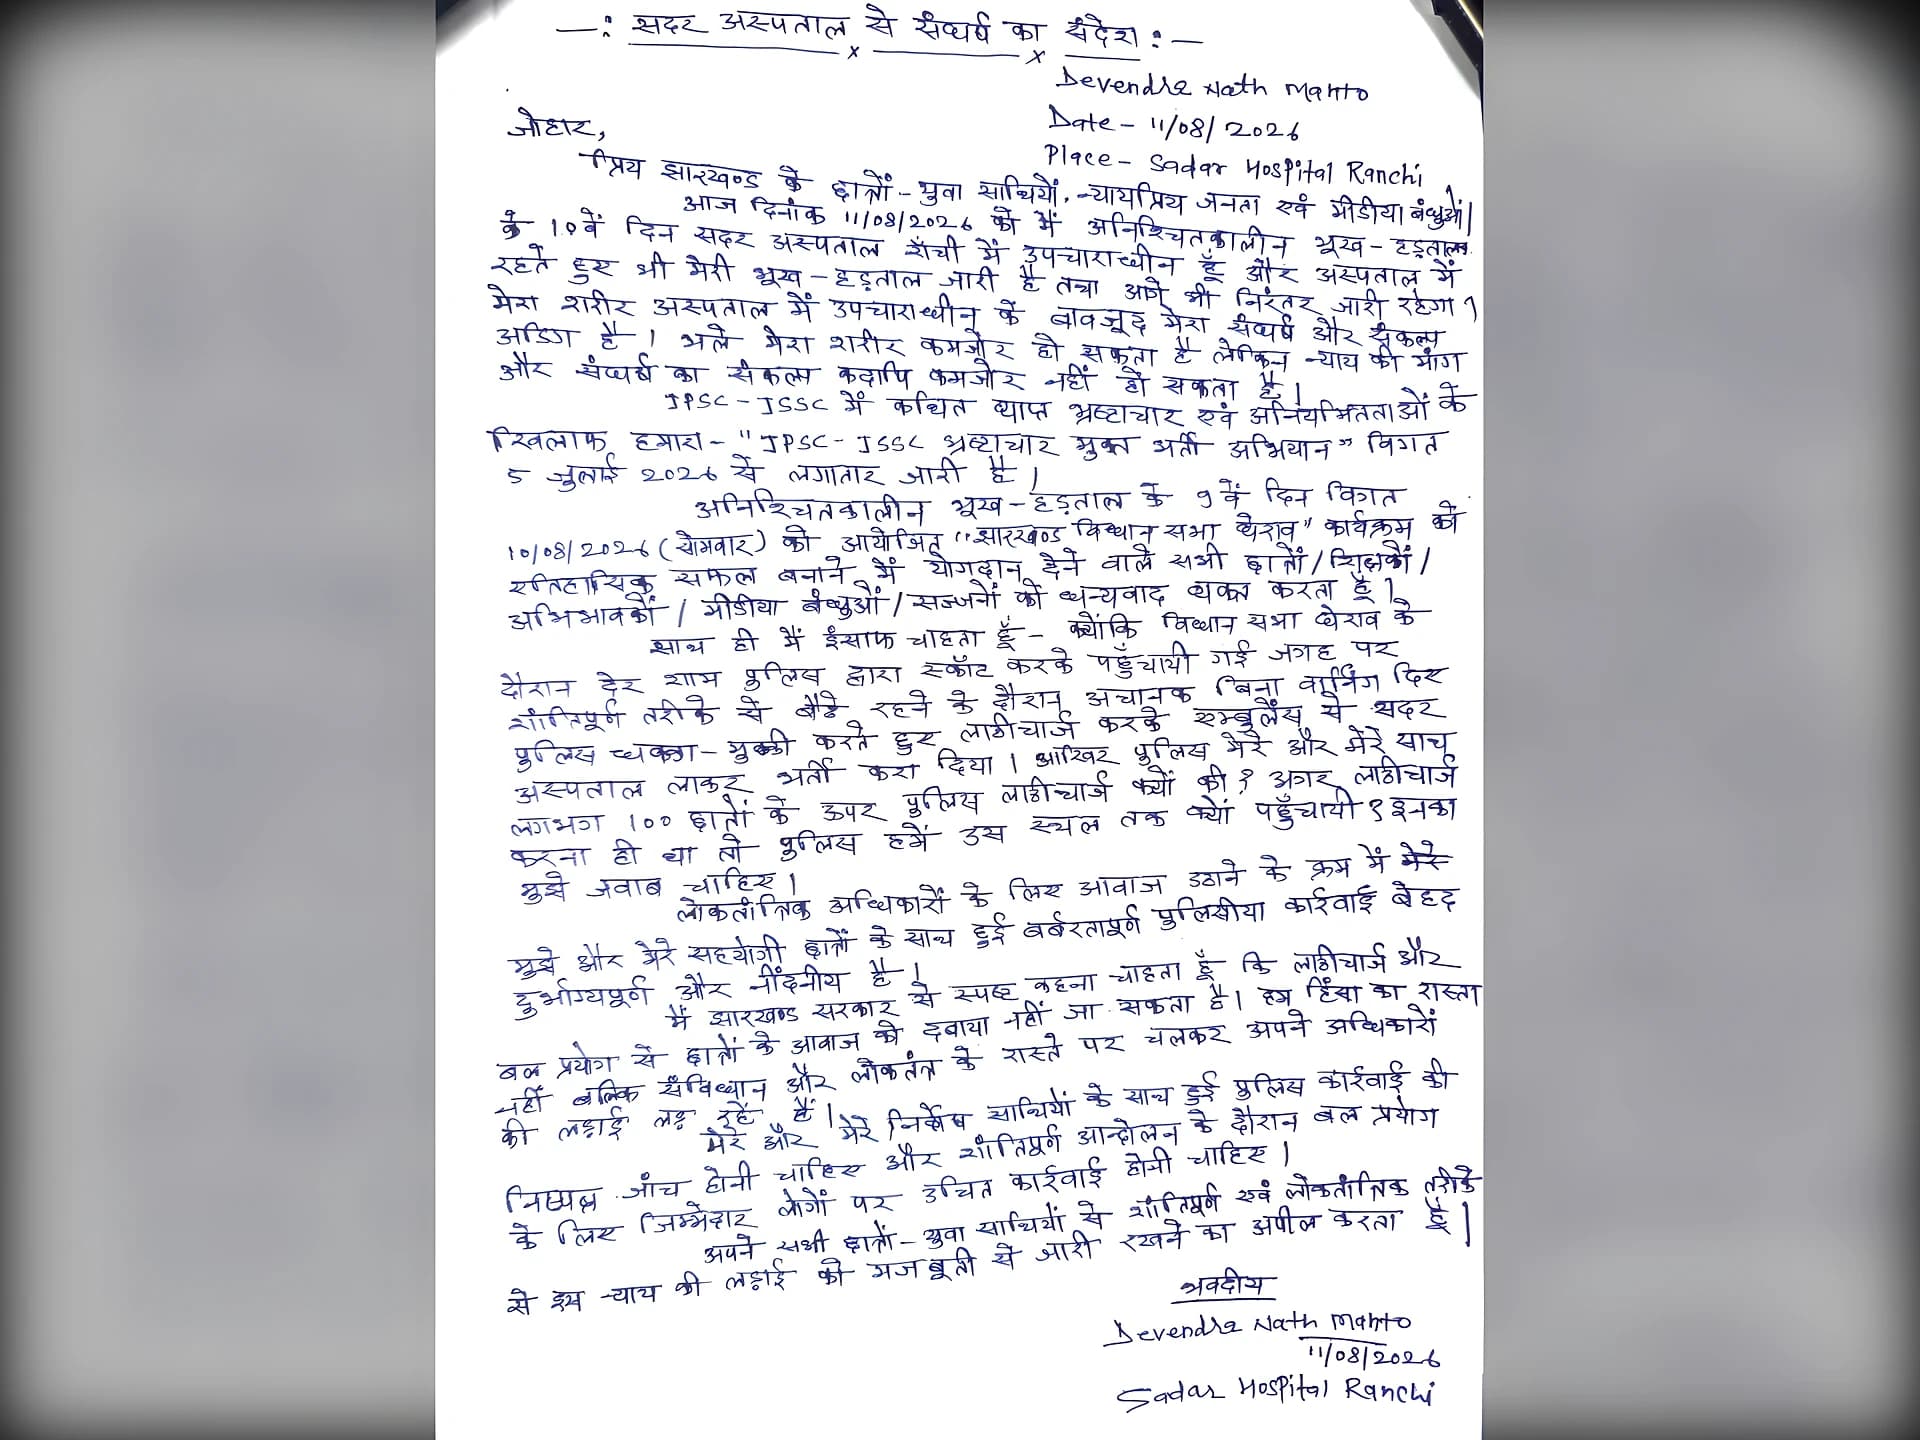 —: सदर अस्पताल से संघर्ष का संदेश :—
Devendra Nath Mahto
Date - 11/08/2026
Place - Sadar Hospital Ranchi
जोहार,
प्रिय झारखण्ड के छात्रों - युवा साथियों, न्यायप्रिय जनता एवं मीडिया बंधुओं।
आज दिनांक 11/08/2026 को मैं अनिश्चितकालीन भूख - हड़ताल
के 10वें दिन सदर अस्पताल राँची में उपचाराधीन हूँ और अस्पताल में
रहते हुए भी मेरी भूख - हड़ताल जारी है तथा आगे भी निरंतर जारी रहेगा।
मेरा शरीर अस्पताल में उपचाराधीन के बावजूद मेरा संघर्ष और संकल्प
अडिग है। भले मेरा शरीर कमजोर हो सकता है लेकिन न्याय की मांग
और संघर्ष का संकल्प कदापि कमजोर नहीं हो सकता है।
JPSC - JSSC में कथित व्याप्त भ्रष्टाचार एवं अनियमितताओं के
खिलाफ हमारा - "JPSC - JSSC भ्रष्टाचार मुक्त भर्ती अभियान" विगत
5 जुलाई 2026 से लगातार जारी है।
अनिश्चितकालीन भूख - हड़ताल के 9वें दिन विगत
10/08/2026 (सोमवार) को आयोजित "झारखण्ड विधान सभा घेराव" कार्यक्रम को
एतिहासिक सफल बनाने में योगदान देने वाले सभी छात्रों / शिक्षकों /
अभिभावकों / मीडिया बंधुओं / सज्जनों को धन्यवाद व्यक्त करता हूँ।
साथ ही मैं इंसाफ चाहता हूँ - क्योंकि विधान सभा घेराव के
दौरान देर शाम पुलिस द्वारा स्कॉट करके पहुँचायी गई जगह पर
शांतिपूर्ण तरीके से बैठे रहने के दौरान अचानक बिना वार्निंग दिए
पुलिस धक्का - मुक्की करते हुए लाठीचार्ज करके एम्बुलेंस से सदर
अस्पताल लाकर भर्ती करा दिया। आखिर पुलिस मेरे और मेरे साथ
लगभग 100 छात्रों के ऊपर पुलिस लाठीचार्ज क्यों की? अगर लाठीचार्ज
करना ही था तो पुलिस हमें उस स्थल तक क्यों पहुँचायी? इनका
मुझे जवाब चाहिए।
लोकतांत्रिक अधिकारों के लिए आवाज उठाने के क्रम में मेरे
मुझे और मेरे सहयोगी छात्रों के साथ हुई बर्बरतापूर्ण पुलिसीया कार्रवाई बेहद
दुर्भाग्यपूर्ण और नींदनीय है।
मैं झारखण्ड सरकार से स्पष्ट कहना चाहता हूँ कि लाठीचार्ज और
बल प्रयोग से छात्रों के आवाज को दबाया नहीं जा सकता है। हम हिंसा का रास्ता
नहीं बल्कि संविधान और लोकतंत्र के रास्ते पर चलकर अपने अधिकारों
की लड़ाई लड़ रहे हैं।
मेरे और मेरे निर्दोष साथियों के साथ हुई पुलिस कार्रवाई की
निष्पक्ष जांच होनी चाहिए और शांतिपूर्ण आन्दोलन के दौरान बल प्रयोग
के लिए जिम्मेदार लोगों पर उचित कार्रवाई होनी चाहिए।
अपने सभी छात्रों - युवा साथियों से शांतिपूर्ण एवं लोकतांत्रिक तरीके
से इस न्याय की लड़ाई को मजबूती से जारी रखने का अपील करता हूँ।
भवदीय
Devendra Nath Mahto
11/08/2026
Sadar Hospital Ranchi